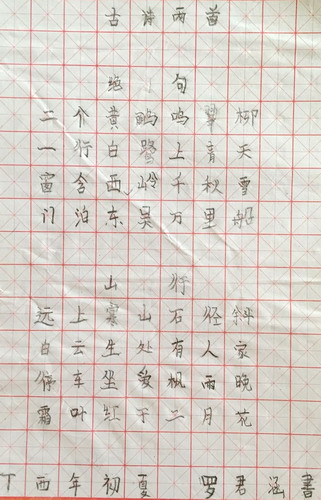 古诗两首
绝句
二个黄鹂鸣翠柳
一行白鹭上青天
窗含西岭千秋雪
门泊东吴万里船
山行
远上寒山石径斜
白云生处有人家
停车坐爱枫雨晚
霜叶红于二月花
丁酉年初夏 罗君涵書